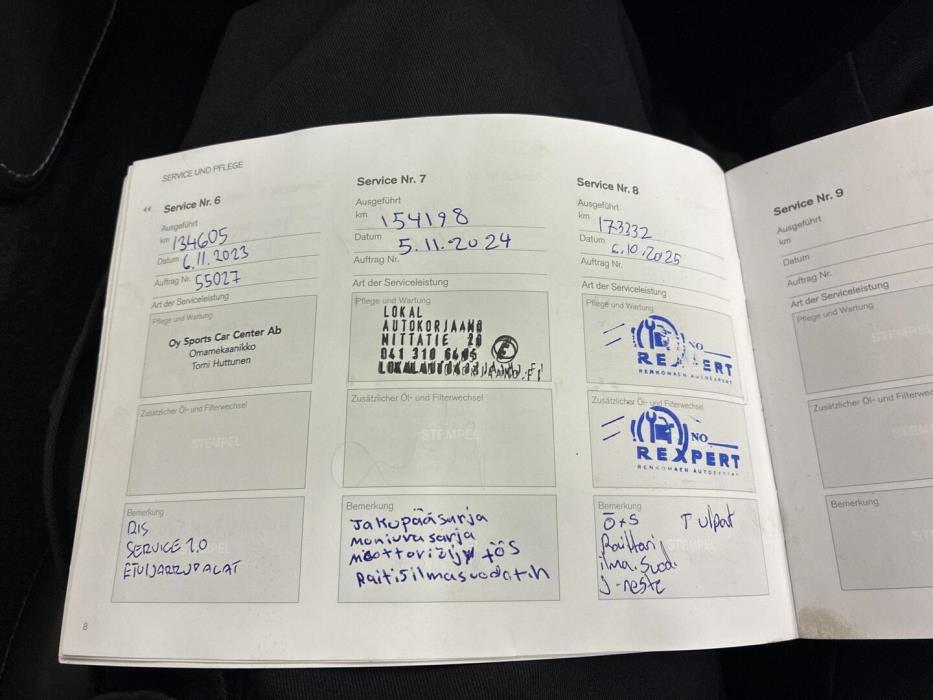 SERVICE UND PFLEGE
Service Nr. 6
Ausgeführt
km 134605
Datum 6.11.2023
Auftrag Nr. 55027
Art der Serviceleistung
Pflege und Wartung
Oy Sports Car Center Ab
Omamekaanikko
Tomi Huttunen
Zusätzlicher Öl- und Filterwechsel
STEMPEL
Bemerkung
SERVICE 2.0
ETUJARRUPALAT
8
Service Nr. 7
Ausgeführt
km 154198
Datum 5.11.2024
Auftrag Nr.
Art der Serviceleistung
Pflege und Wartung
LOKAL
AUTOKORJAAMO
NITTATIE 20
Zusätzlicher Öl- und Filterwechsel
STEMPEL
Bemerkung
Jakopääsarja
moniurasarja
+ÖS
Raitisilmasuodatin
Service Nr. 8
Ausgeführt
km 173232
Datum 6.10.2025
Auftrag Nr.
Art der Serviceleistung
Pflege und Wartung
NO
REXPERT
Zusätzlicher Öl- und Filterwechsel
NO
REXPERT
Bemerkung
Ö+S Tulpat
Raittari
ilma.Suod.
J-neste
Service Nr. 9
Ausgeführt
km
Datum
Auftrag Nr.
Art der Serviceleistung
Pflege und Wartung
Zusätzlicher Öl- und
Bemerkung